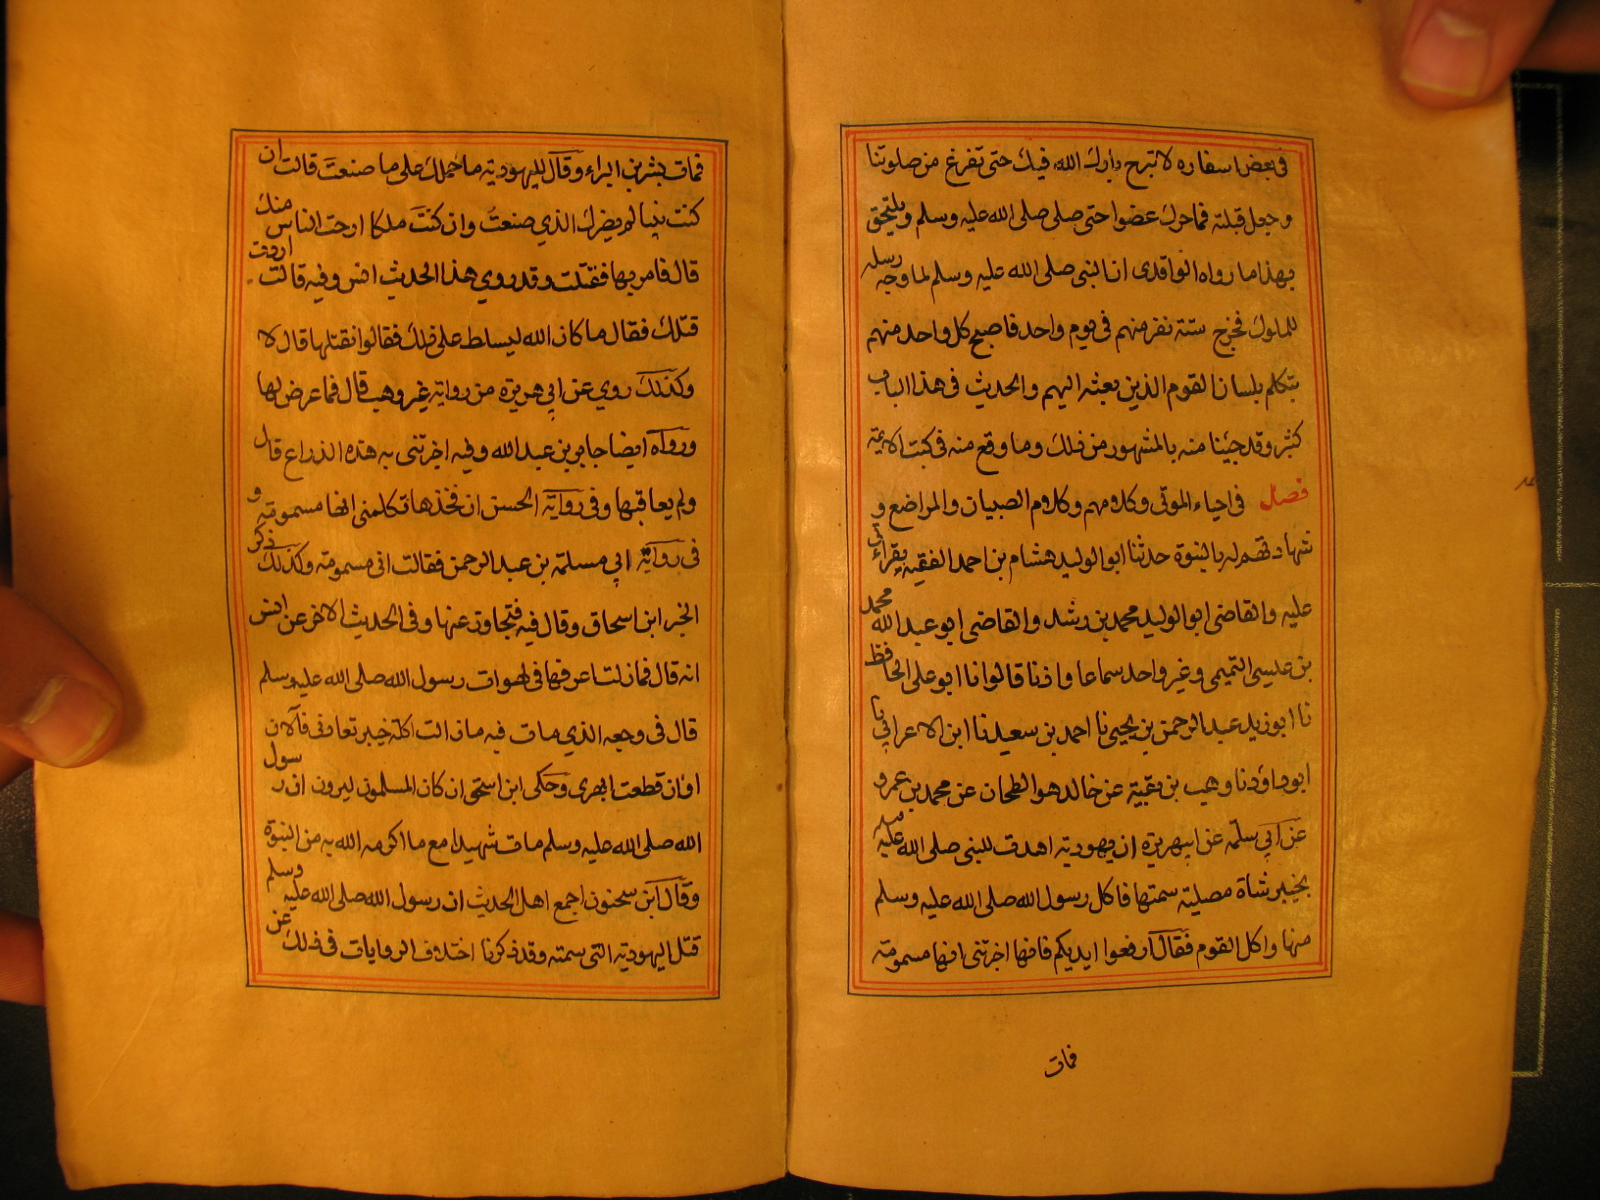 في بعض اسفاره لا تبرح بارك الله فيك حتى تفرغ من صلوتنا
وجعل قبلته فما حرك عضوا حتى صلى صلى الله عليه وسلم ويلتحق
بهذا ما رواه الواقدى ان النبي صلى الله عليه وسلم لما وجه رسله
للملوك فخرج ستة نفر منهم في يوم واحد فاصبح كل واحد منهم
يتكلم بلسان القوم الذين بعثه اليهم والحديث في هذا الباب
كثير وقد جئنا منه بالمشهور من ذلك وما وقع منه في كتب الائمة
فصل في احياء الموتى وكلامهم وكلام الصبيان والمراضع و
شهادتهم له بالنبوة حدثنا ابو الوليد هشام بن احمد الفقيه بقراءتي
عليه والقاضى ابو الوليد محمد بن رشد والقاضى ابو عبد الله محمد
بن عيسى التميمى وغير واحد سماعا واذنا قالوا نا ابو على الحافظ
نا ابو زيد عبد الرحمن بن يحيى نا احمد بن سعيد نا ابن الاعرابي نا
ابو داود نا وهب بن بقية عن خالد هو الطحان عن محمد بن عمرو
عن ابي سلمة عن ابي هريرة ان يهودية اهدت للنبى صلى الله عليه وسلم
بخيبر شاة مصلية سمتها فاكل رسول الله صلى الله عليه وسلم
منها واكل القوم فقال ارفعوا ايديكم فانها اخبرتنى انها مسمومة
فمات
فمات بشر بن البراء وقال لليهودية ما حملك على ما صنعت قالت ان
كنت نبيا لم يضرك الذي صنعت وان كنت ملكا ارحت الناس منك
قال فامر بها فقتلت وقد روي هذا الحديث انس وفيه قالت اردت
قتلك فقال ما كان الله ليسلط على ذلك فقالوا نقتلها قال لا
وكذلك روي عن ابي هريرة من رواية غير وهب قال فما عرض لها
ورواه ايضا جابر بن عبد الله وفيه اخبرتنى به هذه الذراع قال
ولم يعاقبها وفى رواية الحسن ان فخذها تكلمنى انها مسمومة و
فى رواية ابي مسلمة بن عبد الرحمن فقالت انى مسمومة وكذلك ذكر
الخبر ابن اسحاق وقال فيه فتجاوز عنها وفى الحديث الاخر عن انس
انه قال فما زلت اعرفها فى لهوات رسول الله صلى الله عليه وسلم
قال فى وجعه الذي مات فيه ما زالت اكلة خيبر تعاودنى فالان
اوان قطعت ابهرى وحكى ابن اسحق ان كان المسلمون ليرون ان رسول
الله صلى الله عليه وسلم مات شهيدا مع ما اكرمه الله به من النبوة
وقال ابن سحنون اجمع اهل الحديث ان رسول الله صلى الله عليه وسلم
قتل اليهودية التى سمته وقد ذكرنا اختلاف الروايات فى ذلك عن